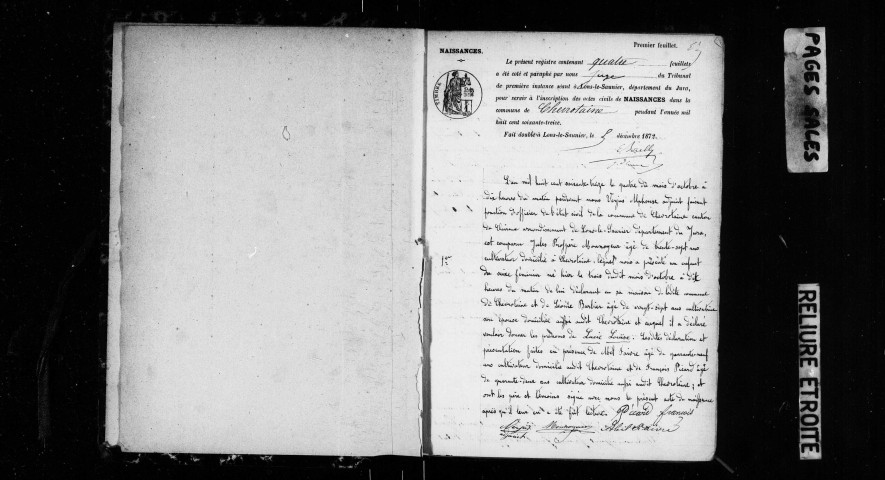 Premier feuillet.
NAISSANCES.
Le présent registre contenant quatre feuillets
a été coté et paraphé par nous juge du Tribunal
de première instance séant à Lons-le-Saunier, département du Jura,
pour servir à l'inscription des actes civils de NAISSANCES dans la
commune de Chevrotaine pendant l'année mil
huit cent soixante-treize.
Fait double à Lons-le-Saunier, le 5 décembre 1872.
TIMBRE
L'an mil huit cent soixante-treize le quatre du mois d'octobre à
dix heures du matin pardevant nous Alphonse adjoint faisant
fonction d'officier de l'état civil de la commune de Chevrotaine canton
de arrondissement de Lons-le-Saunier département du Jura,
est comparu Jules Prospère Monnoyeur âgé de trente-sept ans
cultivateur domicilié à Chevrotaine, lequel nous a présenté un enfant
du sexe féminin né hier le trois dudit mois d'octobre à dix
heures du matin de lui déclarant en sa maison de ladite commune
de Chevrotaine et de Léonie Barbier âgé de vingt-sept ans cultivatrice
son épouse domiciliée aussi audit Chevrotaine et auquel il a déclaré
vouloir donner les prénoms de Lucie Louise. Lesdites déclaration et
présentation faites en présence de Abel Faivre âgé de quarante-neuf
ans cultivateur domicilié audit Chevrotaine et de François Picard âgé
de quarante-deux ans cultivateur domicilié aussi audit Chevrotaine ; et
ont les père et témoins signé avec nous le présent acte de naissance
après qu'il leur en a été fait lecture. Picard françois
adjoint Monnoyeur Abel Faivre
PAGES SALES
RELIURE ÉTROITE